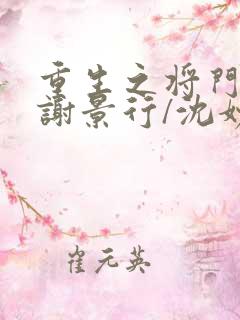 重生之将门
謝景行/沈妙
崔元英